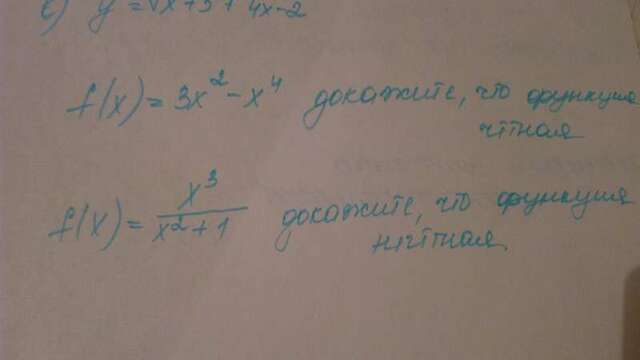 y = √x+3 + 4x-2
f(x) = 3x² - x⁴ докажите, что функция
чётная
f(x) = x³/(x²+1) докажите, что функция
нечётная